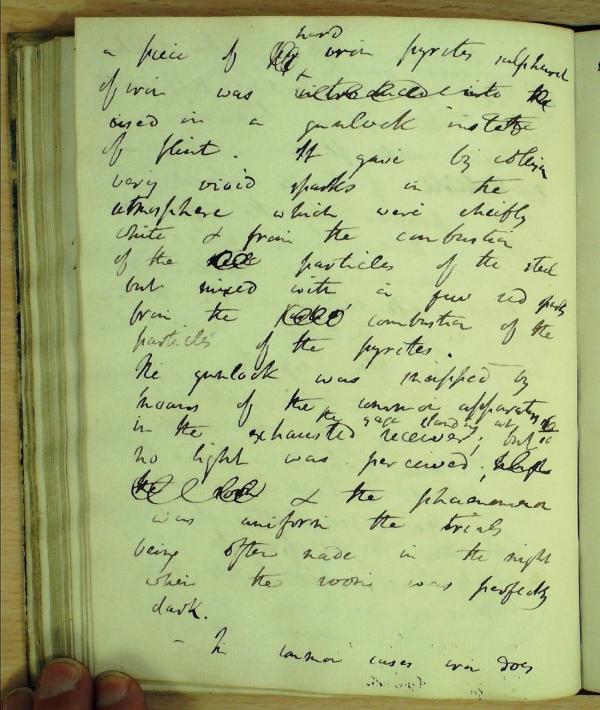 hard
a piece of iron pyrites sulphuret
of iron was introduced into the
used in a gunlock instead
of flint. It gave by collision
very vivid sparks in the
atmosphere which were cheifly
white & from the combustion
of the particles of the steel
but mixed with a few red sparks
from the combustion of the
particles of the pyrites.
The gunlock was snapped by
means of the common apparatus
the gage standing at
in the exhausted receiver; but
no light was perceived;
& the phaenomenon
was uniform the trials
being often made in the night
when the room was perfectly
dark.
– In common cases iron does